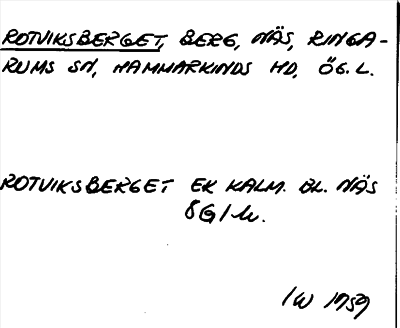 ROTVIKSBERGET, BERG, NÄS, RINGA-
RUMS SN, HAMMARKINDS HD, ÖG. L.
ROTVIKSBERGET EK KALM. BL. NÄS
8G1h.
IW 1959